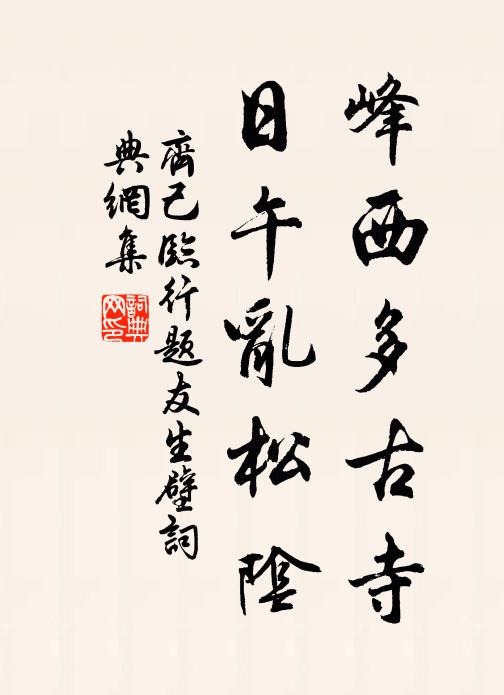 峰西多古寺
日午亂松陰
齊己臨行題友生壁詞
典網集
詞典
網印